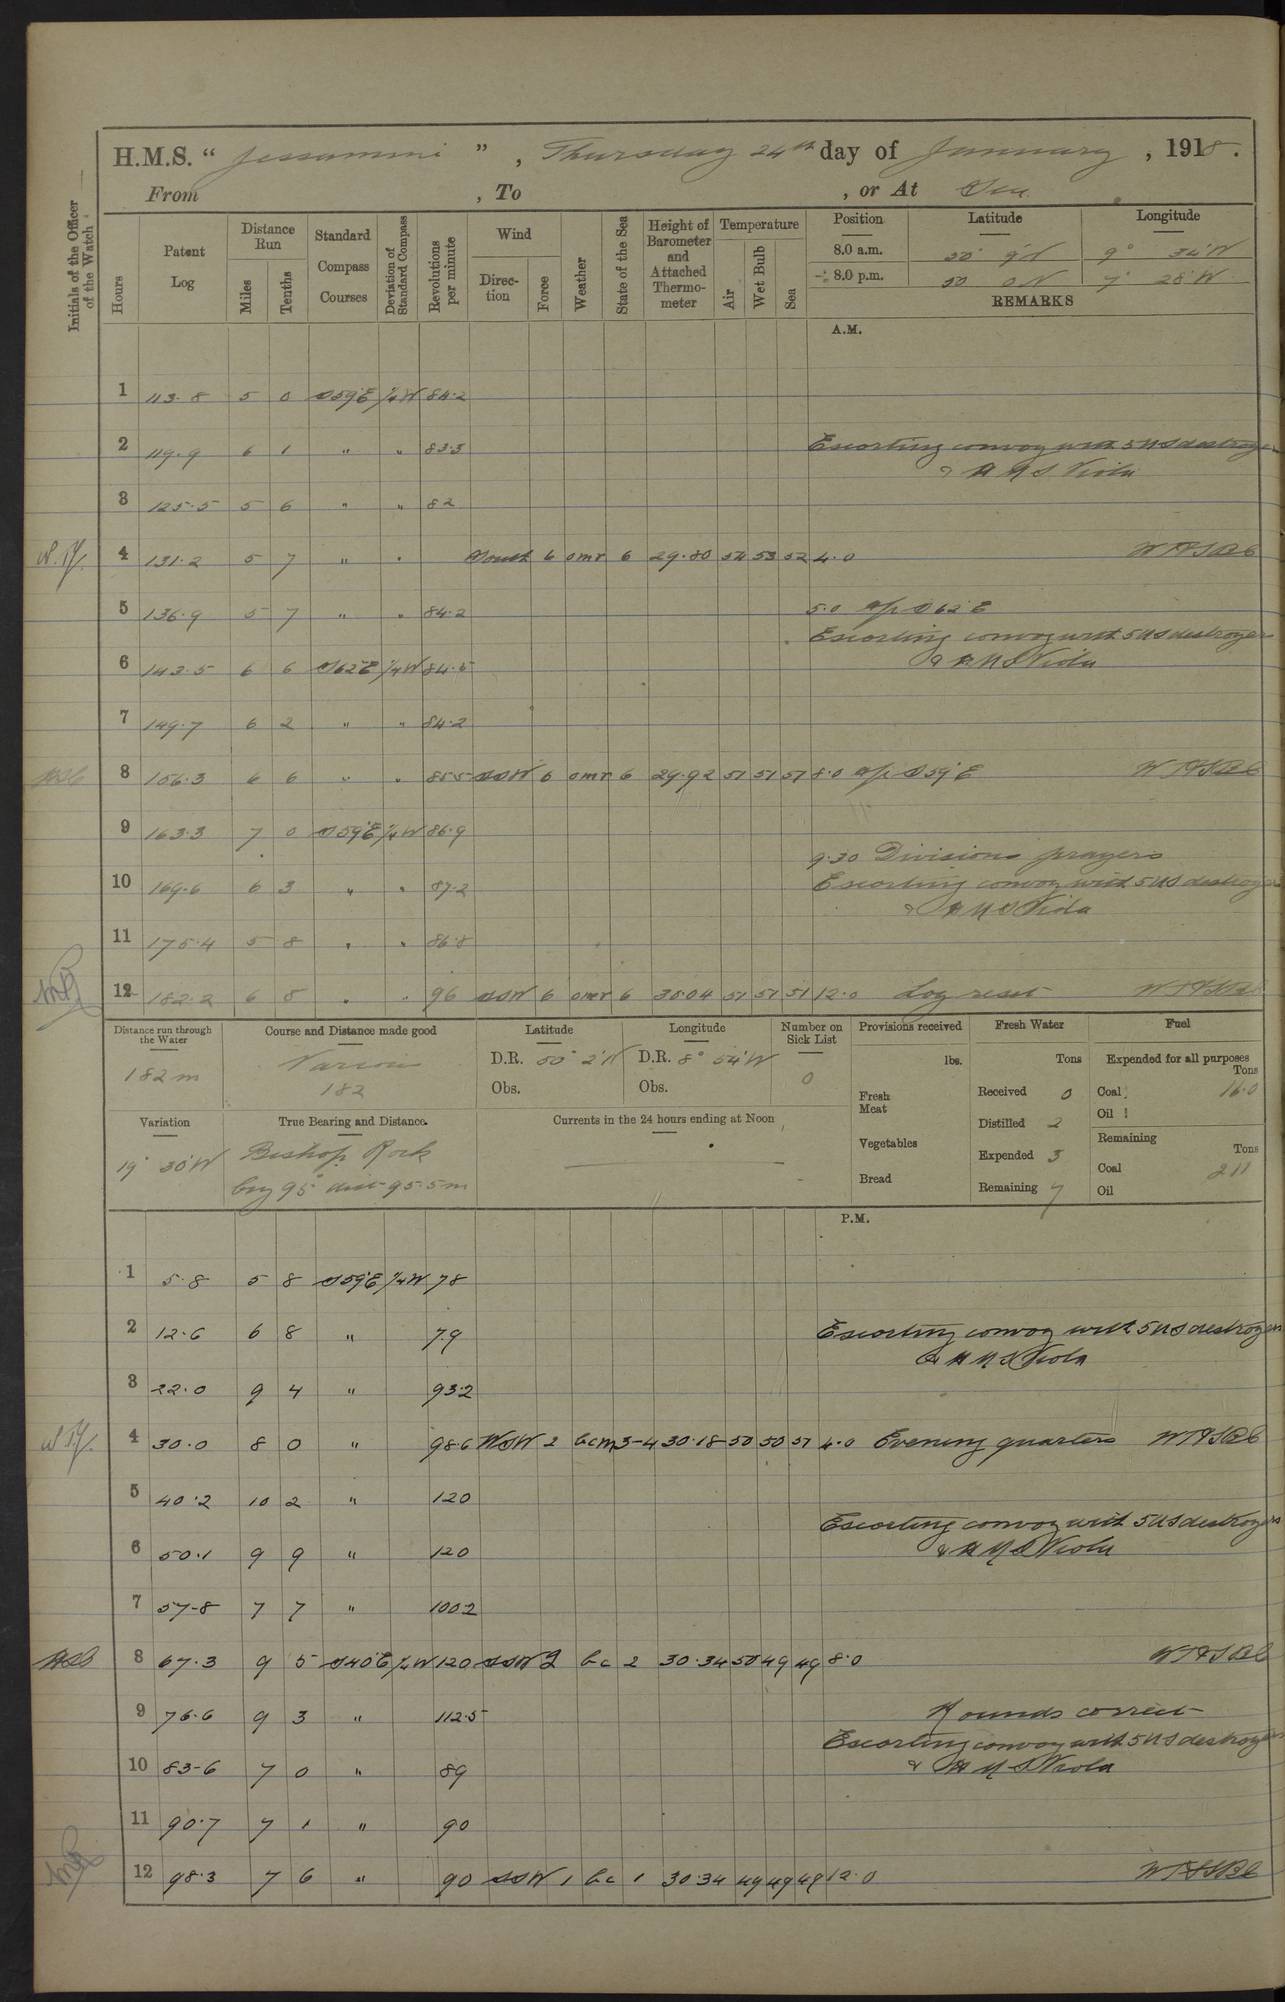 H.M.S. “ Jessamine ” , Thursday 24th day of January , 1918 .
From , To , or At Sea
Initials of the Officer of the Watch
Hours
Patent Log
Distance Run
Miles
Tenths
Standard Compass Courses
Deviation of Standard Compass
Revolutions per minute
Wind
Direction
Force
Weather
State of the Sea
Height of Barometer and Attached Thermometer
Temperature
Air
Wet Bulb
Sea
Position Latitude Longitude
8.0 a.m. 50° 9'N 9° 34'W
8.0 p.m. 50 0 N 7° 28'W
REMARKS
A.M.
1 113.8 5 0 S59°E ¼W 84.2
2 119.9 6 1 " " 83.3 Escorting convoy with 5 US destroyers
& H M S Viola
3 125.5 5 6 " " 82
4 131.2 5 7 " " South 6 omr 6 29.80 54 53 52 4.0 WTHSBC
5 136.9 5 7 " " 84.2 5.0 a/c S 62°E
Escorting convoy with 5 US destroyers
& H M S Viola
6 143.5 6 6 S62°E ¼W 84.5
7 149.7 6 2 " " 84.2
8 156.3 6 6 " " 85.5 SSW 6 omr 6 29.92 51 51 51 8.0 a/c S 59°E
9 163.3 7 0 S59°E ¼W 86.9
9.30 Divisions prayers
10 169.6 6 3 " " 87.2 Escorting convoy with 5 US destroyers
& H M S Viola
11 175.4 5 8 " " 86.8
12 182.2 6 8 " " 96 SSW 6 omr 6 30.04 51 51 51 12.0 Log reset
Distance run through the Water
182 m
Course and Distance made good
Various
182
Latitude
D.R. 50° 2'N
Obs.
Longitude
D.R. 8° 54'W
Obs.
Number on Sick List
0
Provisions received
lbs.
Fresh Meat
Vegetables
Bread
Fresh Water
Tons
Received 0
Distilled 2
Expended 3
Remaining 7
Fuel
Expended for all purposes
Tons
Coal 16.0
Oil
Remaining
Tons
Coal 211
Oil
Variation
19° 30'W
True Bearing and Distance.
Bishop Rock
brg 95° dist 95.5m
Currents in the 24 hours ending at Noon
P.M.
1 5.8 5 8 S59°E ¼W 78
2 12.6 6 8 " 79 Escorting convoy with 5 US destroyers
& H M S Viola
3 22.0 9 4 " 93.2
4 30.0 8 0 " 98.6 WSW 2 bcm 3-4 30.18 50 50 51 4.0 Evening quarters
5 40.2 10 2 " 120
Escorting convoy with 5 US destroyers
6 50.1 9 9 " 120 & H M S Viola
7 57.8 7 7 " 100.2
8 67.3 9 5 S40°E ¼W 120 SSW 2 bc 2 30.34 50 49 49 8.0
9 76.6 9 3 " 112.5 Rounds correct
Escorting convoy with 5 US destroyers
10 83.6 7 0 " 89 & H M S Viola
11 90.7 7 1 " 90
12 98.3 7 6 " 90 SSW 1 bc 1 30.34 49 49 49 12.0